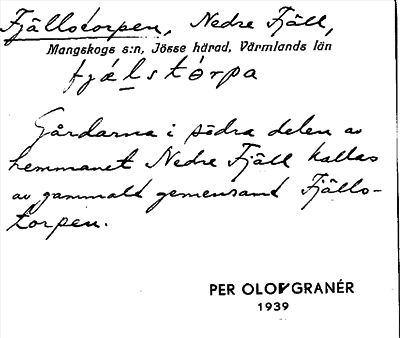 Fjällstorpen, Nedre Fjäll,
Mangskogs s:n, Jösse härad, Värmlands län
fjælstórpa
Gårdarna i södra delen av
hemmanet Nedre Fjäll kallas
av gammalt gemensamt Fjälls-
torpen.
PER OLOF GRANÉR
1939